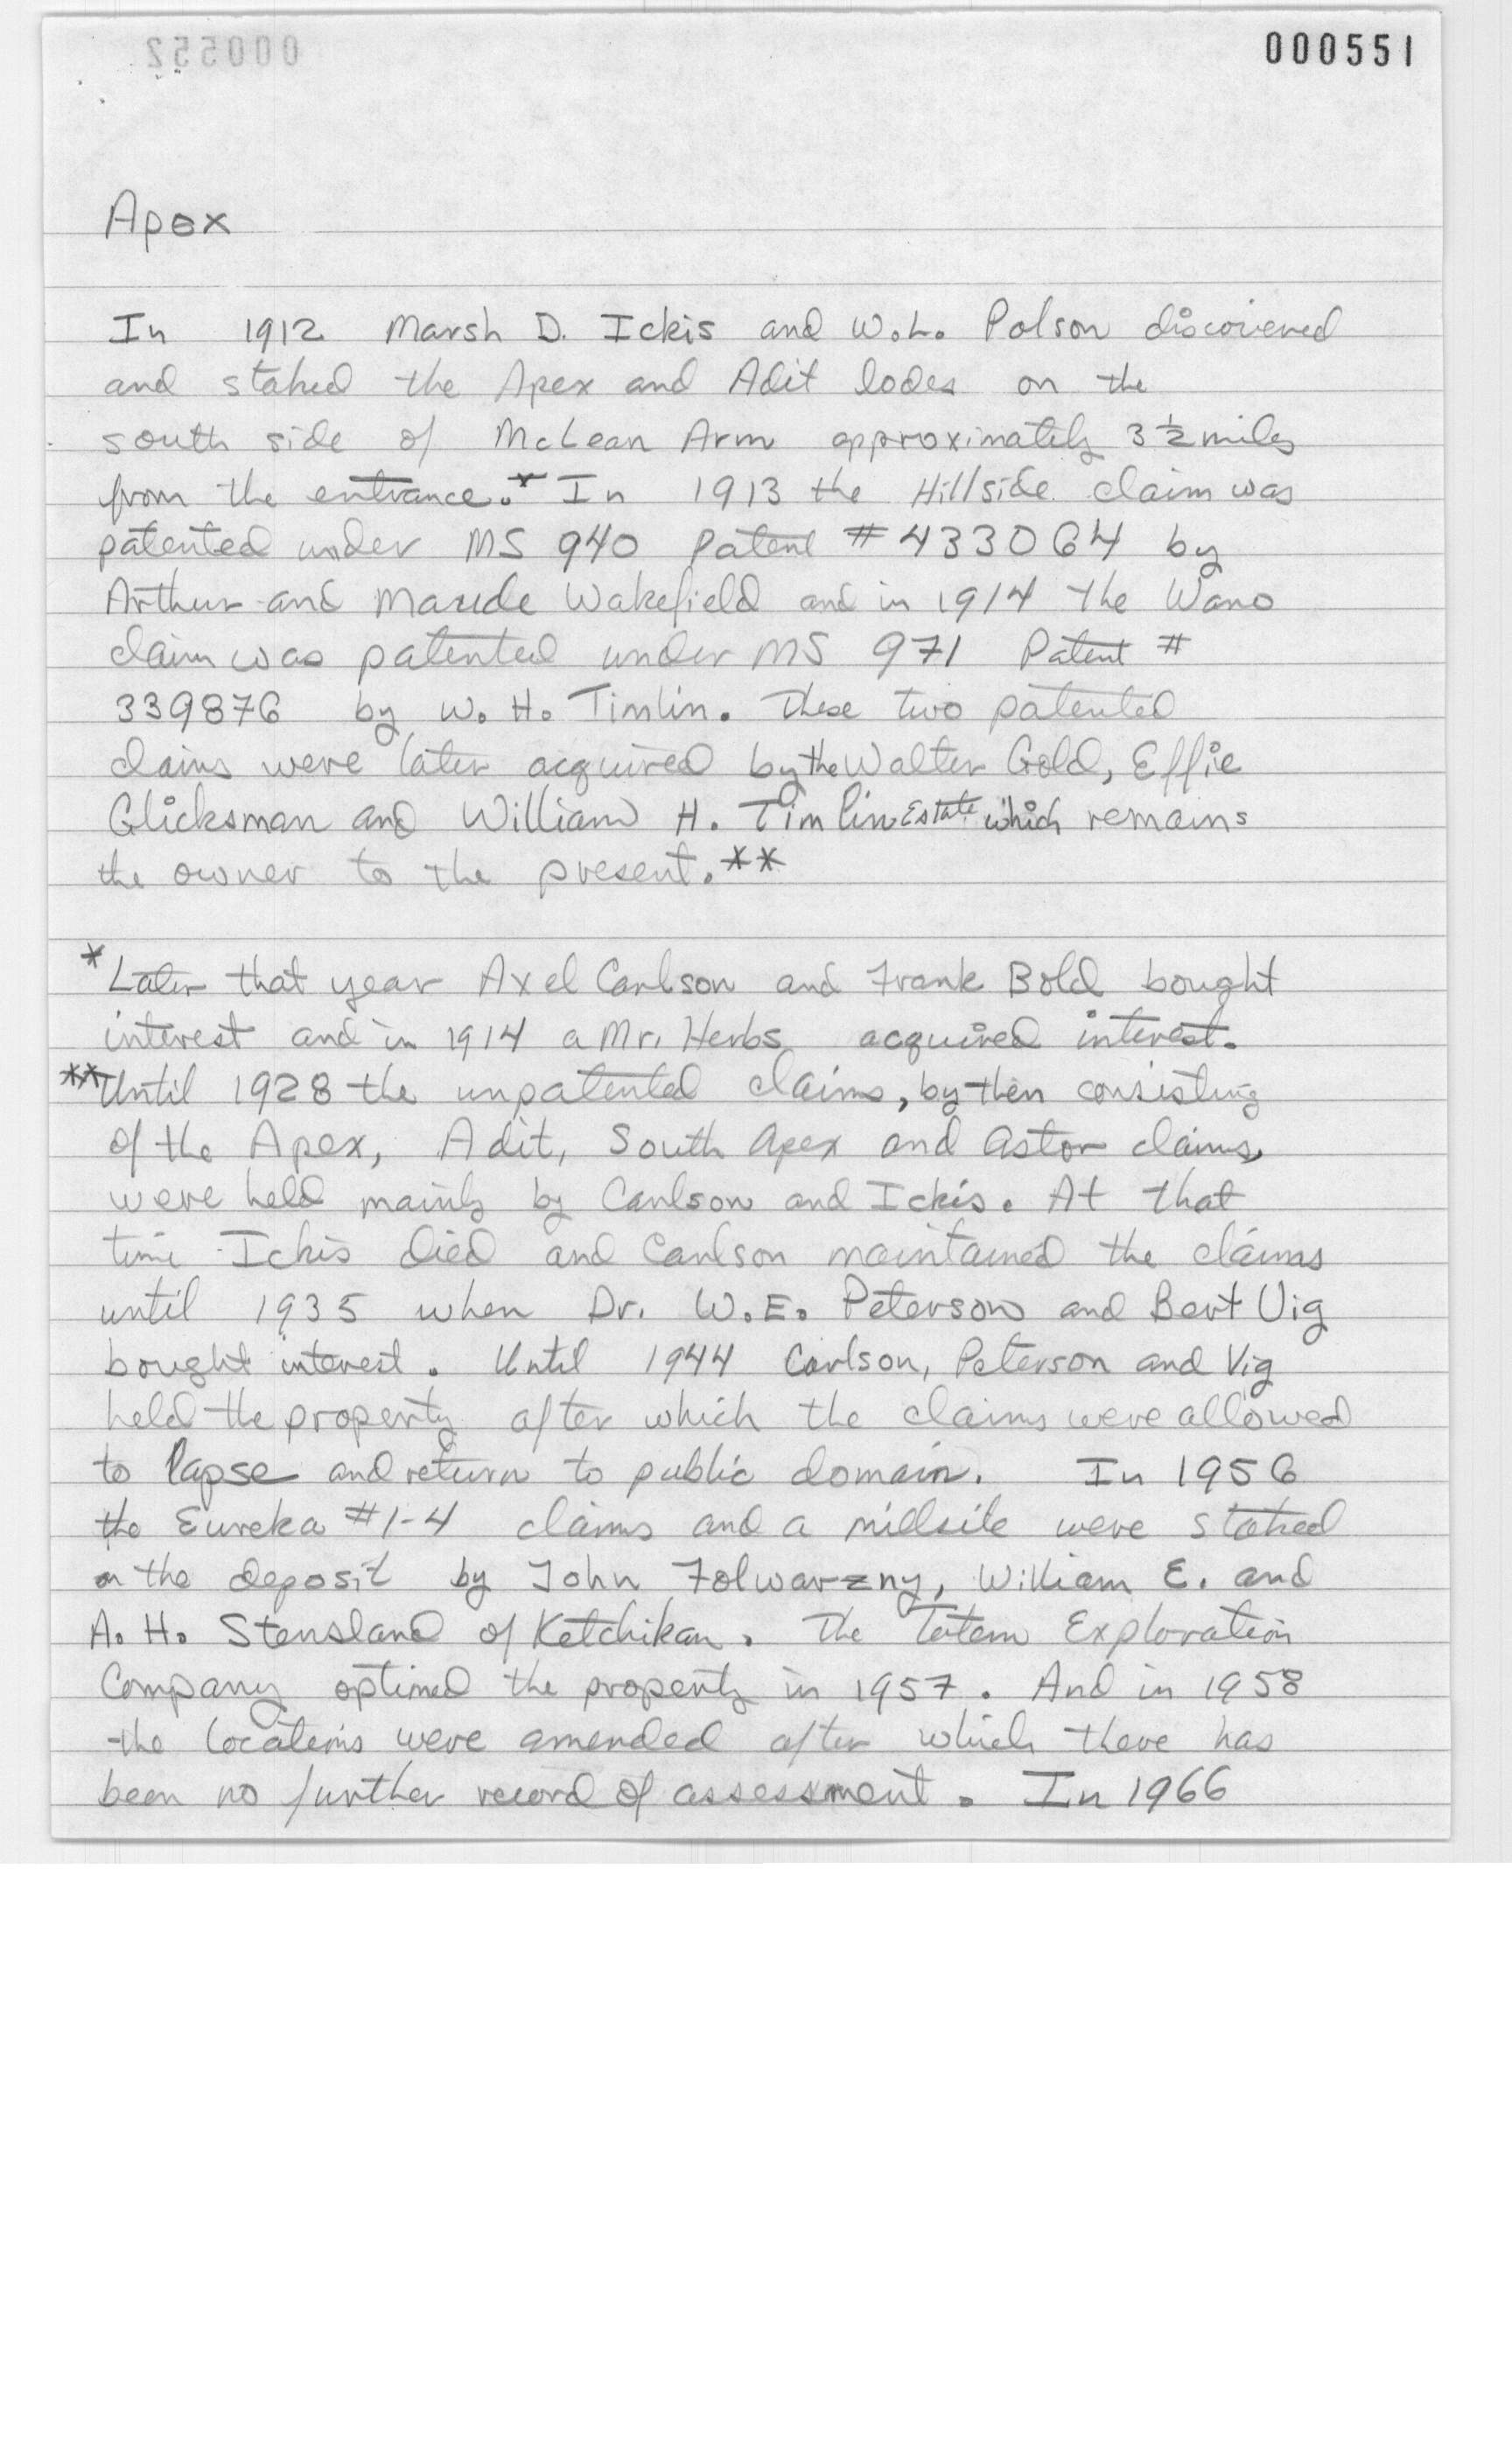 000552
000551
Apex
In 1912 Marsh D. Ickis and W.L. Polson discovered
and staked the Apex and Adit lodes on the
south side of McLean Arm approximately 3 1/2 miles
from the entrance.* In 1913 the Hillside claim was
patented under MS 940 Patent # 433064 by
Arthur and Maude Wakefield and in 1914 the Wano
claim was patented under MS 971 Patent #
339876 by W. H. Timlin. These two patented
claims were later acquired by the Walter Gold, Effie
Glicksman and William H. Timlin Estate which remains
the owner to the present.**
*Later that year Axel Carlson and Frank Bold bought
interest and in 1914 a Mr. Herbs acquired interest.
**Until 1928 the unpatented claims, by then consisting
of the Apex, Adit, South Apex and Astor claims,
were held mainly by Carlson and Ickis. At that
time Ickis died and Carlson maintained the claims
until 1935 when Dr. W.E. Peterson and Bert Vig
bought interest. Until 1944 Carlson, Peterson and Vig
held the property after which the claims were allowed
to lapse and return to public domain. In 1956
the Eureka #1-4 claims and a millsite were staked
on the deposit by John Folwarzny, William E. and
A. H. Stensland of Ketchikan. The Totem Exploration
Company optined the property in 1957. And in 1958
the locations were amended after which there has
been no further record of assessment. In 1966